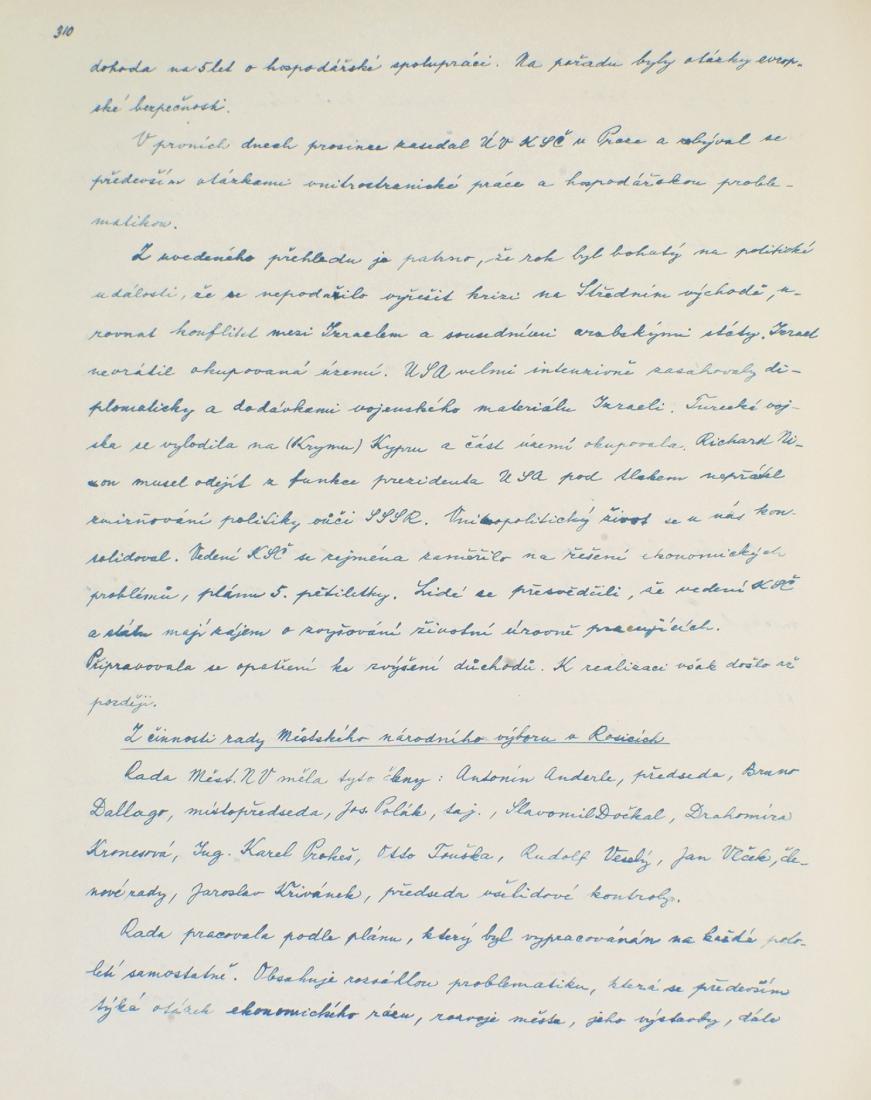 310
dohoda na 5 let o hospodářské spolupráci. Na pořadu byly otázky evrop-
ské bezpečnosti.
V prvních dnech prosince zasedal ÚV KSČ v Praze a zabýval se
především otázkami vnitrostranické práce a hospodářskou proble-
matikou.
Z uvedeného přehledu je patrno, že rok byl bohatý na politické
události, že se nepodařilo vyřešit krizi na Středním východě, u-
rovnat konflikt mezi Izraelem a sousedními arabskými státy. Izrael
nevrátil okupovaná území. USA velmi intenzivně zasahovaly di-
plomaticky a dodávkami vojenského materiálu Izraeli. Turecké voj-
ska se vylodila na (Krymu) Kypru a část území okupovala. Richard Ni-
xon musel odejít z funkce prezidenta USA pod tlakem nepřátel
zmirňování politiky vůči SSSR. Vnitropolitický život se u nás kon-
solidoval. Vedení KSČ se zejména zaměřilo na řešení ekonomických
problémů, plánu 5. pětiletky. Lidé se přesvědčili, že vedení KSČ
a státu mají zájem o zvyšování životní úrovně pracujících.
Připravovala se opatření ke zvýšení důchodů. K realizaci však došlo až
později.
Z činnosti rady Městského národního výboru v Rosicích
Rada Měst. NV měla tyto členy: Antonín Anderle, předseda, Bruno
Dallago, místopředseda, Jos. Polák, taj., Slavomil Dočkal, Drahomíra
Kronesová, Ing. Karel Prokeš, Otto Touška, Rudolf Veselý, Jan Vlček, čle-
nové rady, Jaroslav Křivánek, předseda všelidové kontroly.
Rada pracovala podle plánu, který byl vypracovánán na každé polo-
letí samostatně. Obsahuje rozsáhlou problematiku, která se především
týká otázek ekonomického rázu, rozvoje města, jeho výstavby, dále